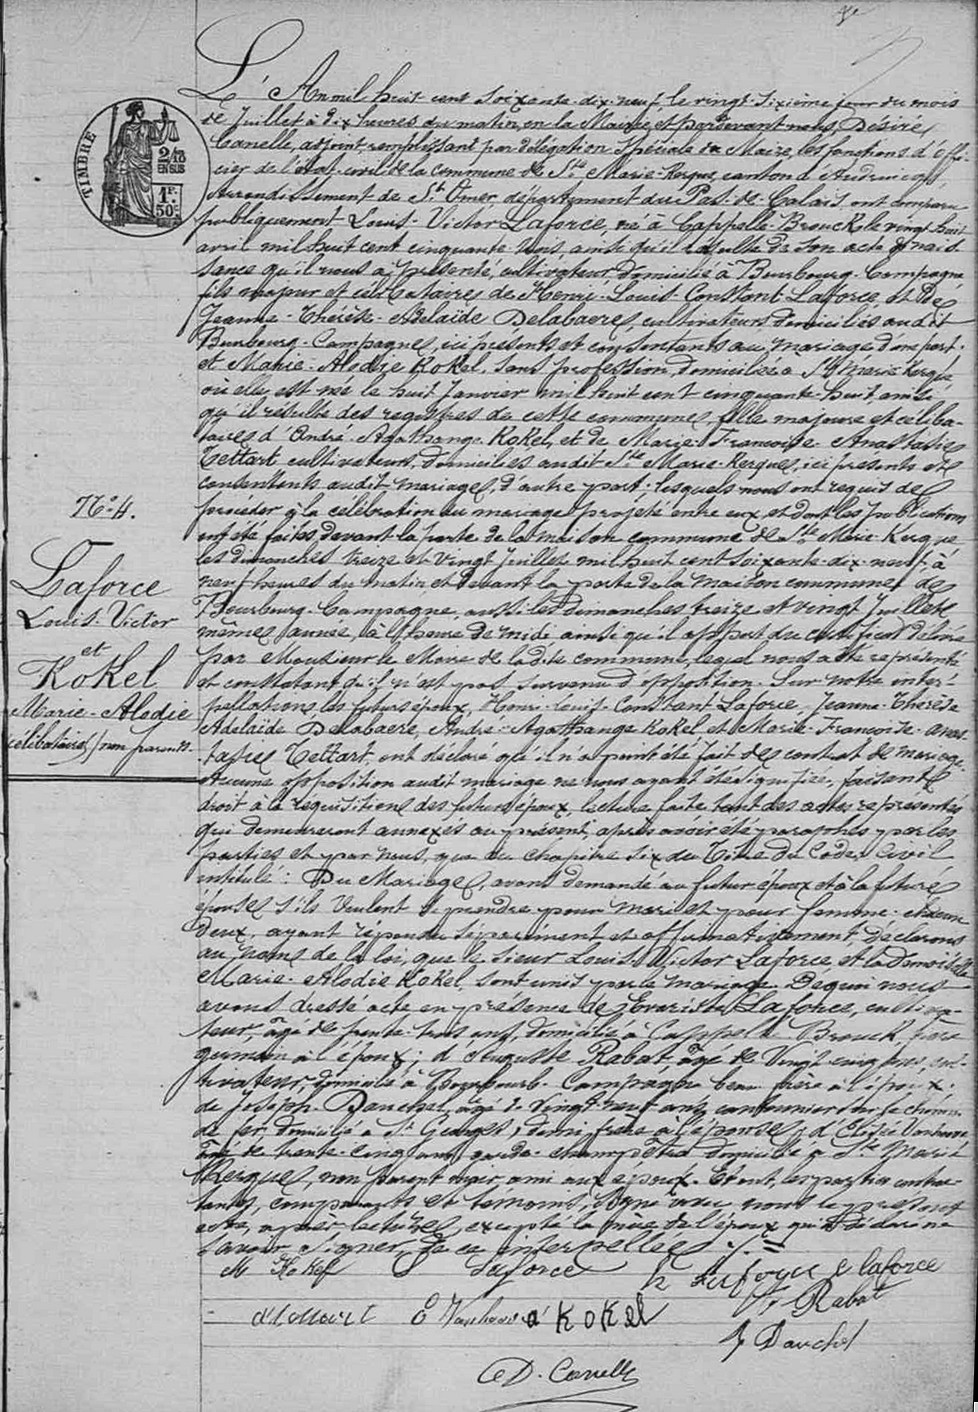 TIMBRE
2/10
EN SUS
1F.
50c.
N° 4.
Laforce
Louis-Victor
et
Kokel
Marie-Alodie
célibataires / non parents
L'An mil huit cent soixante-dix-neuf, le vingt-sixième jour du mois
de Juillet à dix heures du matin, en la Mairie et pardevant nous, Désiré
Canelle, adjoint, remplissant par délégation spéciale du Maire, les fonctions d'offi-
cier de l'état-civil de la commune de Ste Marie-Kerque, canton d'Audruicq,
Arrondissement de St Omer, département du Pas-de-Calais ont comparu
publiquement Louis-Victor Laforce, né à Cappelle-Brouck le vingt-huit
avril mil huit cent cinquante-trois, ainsi qu'il résulte de son acte de nais
sance qu'il nous a présenté, cultivateur domicilié à Bourbourg-Campagne
fils majeur et célibataire de Henri-Louis-Constant Laforce, et de
Jeanne-Thérèse-Adelaïde Delabaere, cultivateurs domiciliés audit
Bourbourg-Campagne, ici présents et consentants au mariage, d'une part.
et Marie-Alodie Kokel, sans profession, domiciliée à Ste Marie Kerque
où elle est née le huit Janvier mil huit cent cinquante-huit ainsi
qu'il résulte des registres de cette commune, fille majeure et céliba-
taire d'André-Agathange Kokel, et de Marie-Françoise-Anastasie
Tettart cultivateurs, domiciliés audit Ste Marie-Kerque, ici présents et
consentants audit mariage, d'autre part; lesquels nous ont requis de
procéder à la célébration du mariage projeté entre eux et dont les publications
ont été faites devant la porte de la maison commune de Ste Marie-Kerque
les dimanches treize et vingt Juillet mil huit cent soixante-dix-neuf, à
neuf heures du matin et devant la porte de la maison commune de
Bourbourg-Campagne aussi les dimanches treize et vingt Juillet
même année, à l'heure de midi ainsi qu'il appert du certificat délivré
par Monsieur le Maire de ladite commune, lequel nous a été représenté
et constatant qu'il n'est pas survenu d'opposition. Sur notre inter-
pellation, les futurs époux, Henri-Louis-Constant Laforce, Jeanne-Thérèse
Adelaïde Delabaere, André-Agathange Kokel et Marie-Françoise-Anas
tasie Tettart, ont déclaré qu'il n'a point été fait de contrat de mariage.
Aucune opposition audit mariage ne nous ayant été signifiée, faisant
droit à la réquisition des futurs époux, lecture faite, tant des actes représentés
qui demeureront annexés au présent, après avoir été paraphés par les
parties et par nous, que du chapitre six du Titre du Code Civil
intitulé: Du Mariage, avons demandé au futur époux et à la future
épouse s'ils veulent se prendre pour mari et pour femme: chacun
deux, ayant répondu séparément et affirmativement, déclarons
au nom de la loi, que le sieur Louis-Victor Laforce, et la demoiselle
Marie-Alodie Kokel, sont unis par le mariage. De quoi nous
avons dressé acte en présence de Evariste Laforce, cultiva-
teur, âgé de trente-trois ans, domicilié à Cappelle Brouck, frère
germain à l'époux; d'Auguste Rabat, âgé de vingt-cinq ans, cul-
tivateur, domicilié à Bourbourg-Campagne beau-frère à l'époux;
de Joseph Dauchel, âgé de vingt-neuf ans, cantonnier sur le chemin
de fer, domicilié à St Georges, demi-frère à l'épouse; d'Elisée
âgé de trente-cinq ans, garde-champêtre domicilié à Ste Marie
Kerque, non parent mais ami aux époux. Et ont, les parties contrac
tantes, comparants et témoins, signé avec nous le présent
acte, après lecture, excepté la mère de l'époux qui a déclaré ne
savoir signer, de ce interpellée ./.
M Kokel
Laforce
h Laforce
E laforce
Rabat
E
a Kokel
J Dauchel
D. Canelle